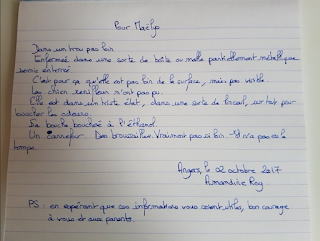 Pour Maëlys
Dans un trou pas loin
Enfermée dans une sorte de boîte ou malle partiellement métallique
semie enterrée
C'est pour ça qu'elle est pas loin de la surface, mais pas visible.
Les chien renifleur n'ont pas pu.
Elle est dans un triste état, dans une sorte de linceul, surtout pour
boucher les odeurs.
Sa bouche bouchée à l'éthanol
Un carrefour Des broussailles. Vraiment pas si loin - Il n'a pas eu le
temps.
Angers, le 02 octobre 2017
Amandine Roy
PS : en espérant que ces informations vous soient utiles, bon courage
à vous et aux parents.